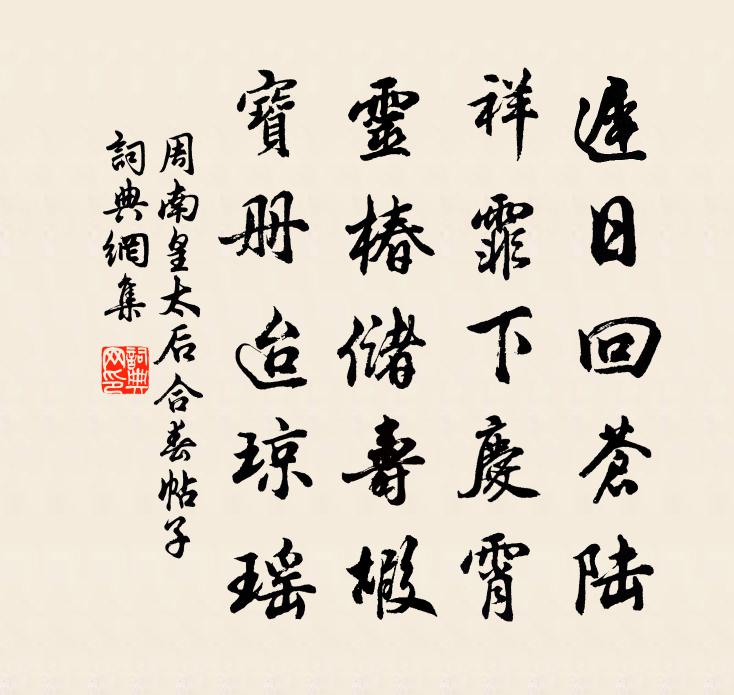 遲日回蒼陆
祥霏下慶霄
靈椿儲壽椵
寶册迨琼瑶
周南皇太后合春帖子
詞典網集
詞典网印